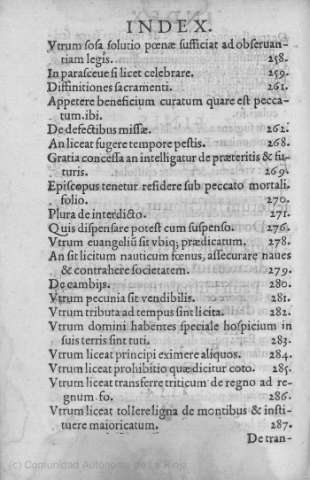 INDEX.
Vtrum sosa solutio pœnæ sufficiat ad obseruan-
tiam legis. 258.
In parasceue si licet celebrare. 259.
Diffinitiones sacramenti. 261.
Appetere beneficium curatum quare est pecca-
tum. ibi.
De defectibus missæ. 262.
An liceat fugere tempore pestis. 268.
Gratia concessa an intelligatur de præteritis & fu-
turis. 269.
Episcopus tenetur residere sub peccato mortali.
folio. 270.
Plura de interdicto. 271.
Quis dispensare potest cum suspenso. 276.
Vtrum euangeliũ sit vbiq; prædicatum. 278.
An sit licitum nauticum fœnus, assecurare naues
& contrahere societatem. 279.
De cambijs. 280.
Vtrum pecunia sit vendibilis. 281.
Vtrum tributa ad tempus sint licita. 282.
Vtrum domini habentes speciale hospicium in
suis terris sint tuti. 283.
Vtrum liceat principi eximere aliquos. 284.
Vtrum liceat prohibitio quæ dicitur coto. 285.
Vtrum liceat transferre triticum de regno ad re-
gnum fo. 286.
Vtrum liceat tollere ligna de montibus & insti-
tuere maioricatum. 287.
De tran-
(c) Comunidad Autónoma de La Rioja